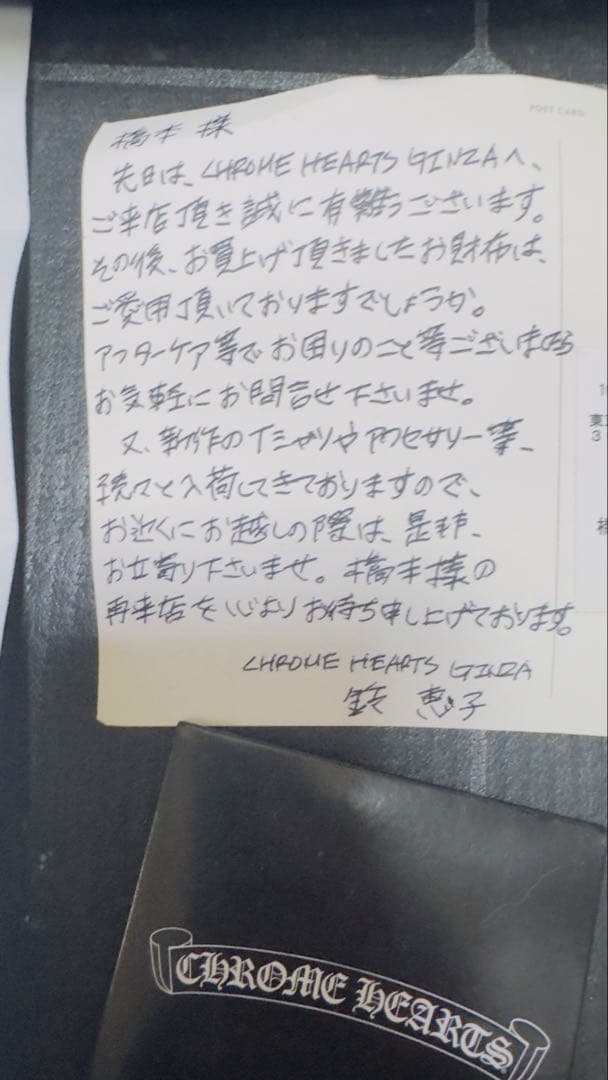 POST CARD
橋本 様
先日は、CHROME HEARTS GINZAへ、
ご来店頂き誠に有難うございます。
その後、お買上げ頂きましたお財布は、
ご愛用頂いておりますでしょうか。
アフターケア等でお困りのこと等ございましたら
お気軽にお問合せ下さいませ。
又、新作のTシャツやアクセサリー等、
続々と入荷してきておりますので、
お近くにお越しの際は、是非、
お立寄り下さいませ。橋本様の
再来店を心よりお待ち申し上げております。
CHROME HEARTS GINZA
鈴 恵子
東
3
CHROME HEARTS